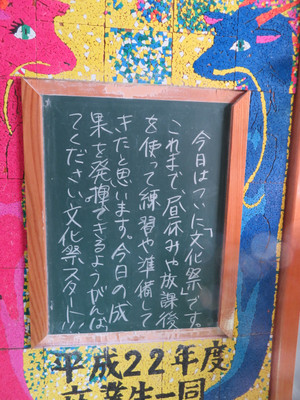 今日はついに「文化祭です
これまで、昼休みや放課後
を使って練習や準備して
きたと思います。今日の成
果を発揮できるようがんば
てください。文化祭スタート!!
平成22年度
卒業生一同